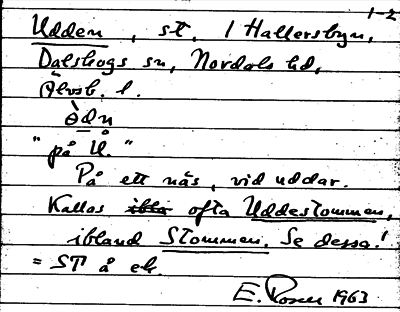 1-2
Udden, st. i Hallersbyn,
Dalskogs sn, Nordals hd,
Älvsb. l.
ùdn
"på U."
På ett näs, vid uddar.
Kallas ofta Uddestommen,
ibland Stommen. Se dessa!
= ST å ek.
E. Rosen 1963